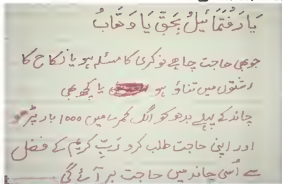 یَا رَفْتَمَائِیلُ بِحَقِّ یَا وَھَّابُ
جوبھی حاجت چاہے نوکری کا مسئلہ ہو یا نکاح کا
رشتوں میں تناؤ ہو یا کچھ بھی
چاند کے پہلے بدھ کو الگ کمرے میں 1000 بار پڑھو
اور اپنی حاجت طلب کرو رَبِّ کریم کے فضل
سے اُسی چاند میں حاجت بر آئے گی